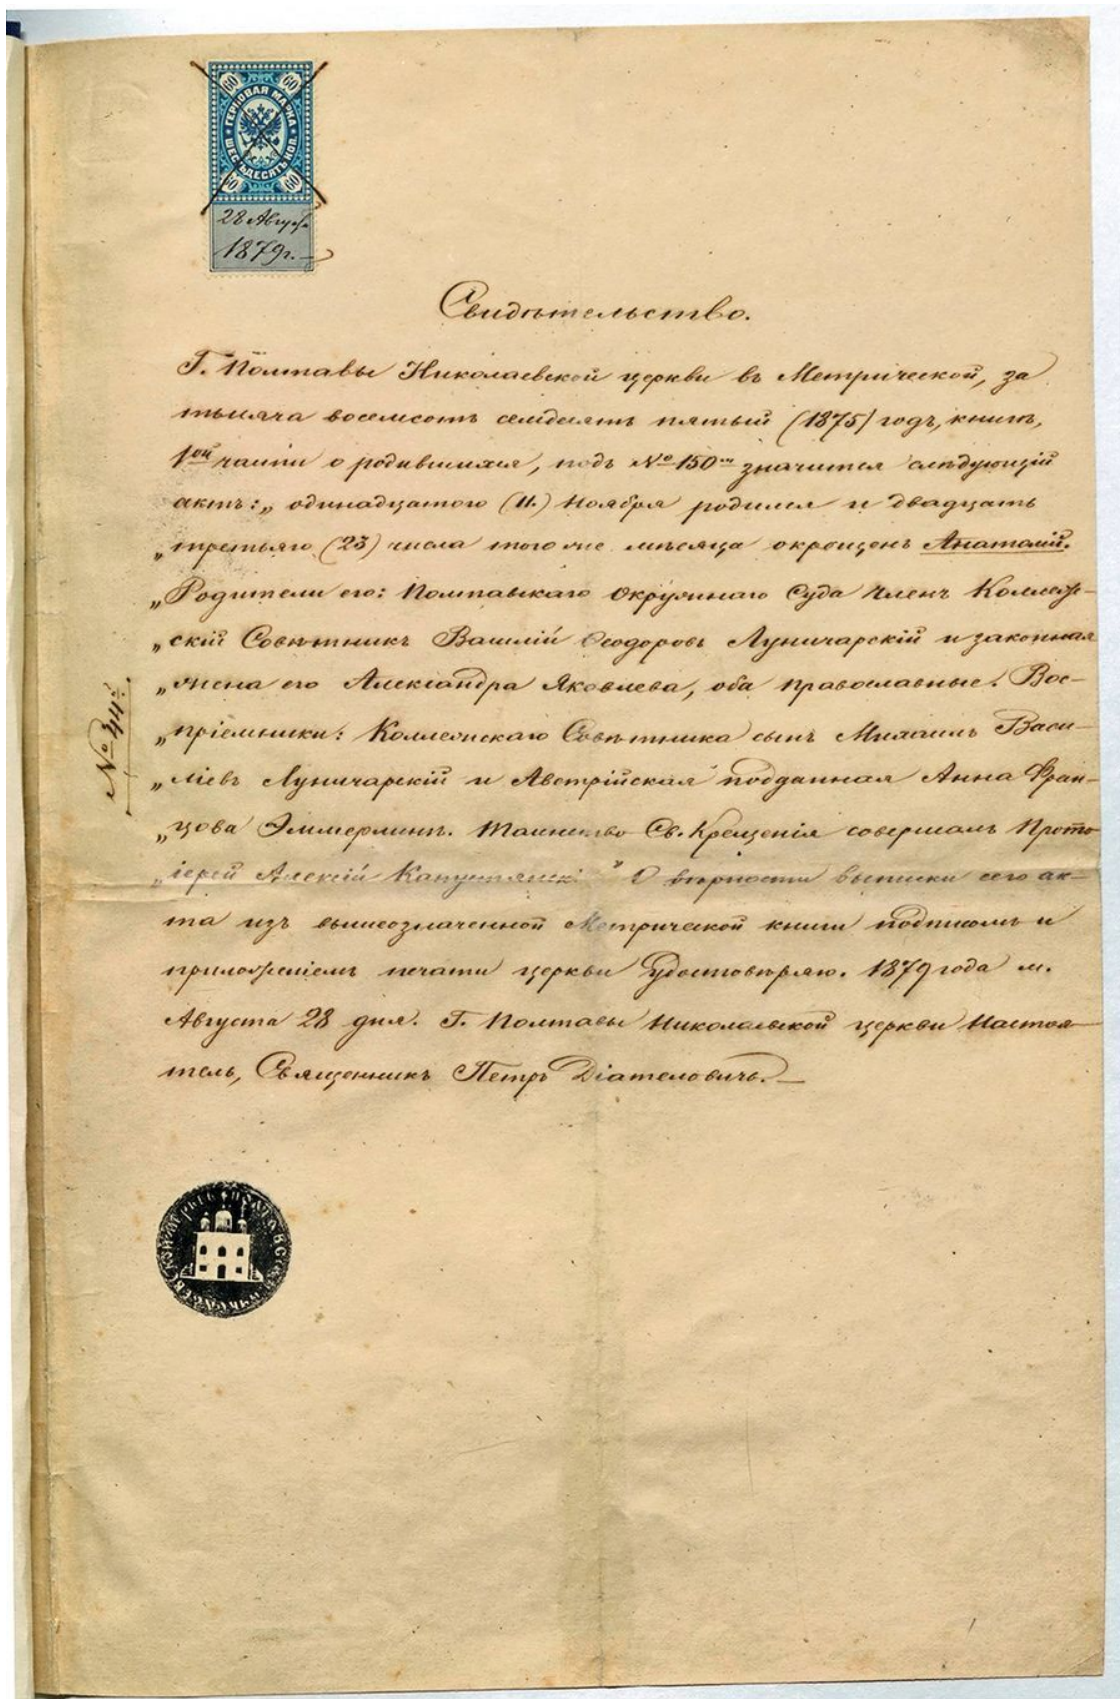 60 60
ГЕРБОВАЯ МАРКА
ШЕСТЬДЕСЯТЬ КОП.
60 60
28 Августа
1879 г.
Свидѣтельство.
Г. Полтавы Николаевской церкви въ Метрической, за
тысяча восемсотъ семдесятъ пятый (1875) годъ, книгѣ,
1ой части о родившихся, подъ № 150м значится слѣдующій
актъ: „одинадцатого (11.) Ноября родился и двадцать
„третьяго (23) числа того же мѣсяца окрещенъ Анатолій.
„Родители его: Полтавскаго Окружнаго Суда Членъ Коллеж-
„скій Совѣтникъ Василій Ѳеодоровъ Луничарскій и законная
„жена его Александра Яковлева, оба православные. Вос-
„пріемники: Коллежскаго Совѣтника сынъ Михаилъ Васи-
„ліевъ Луничарскій и Австрійская подданная Анна Фран-
„цова Эммерлингъ. Таинство Св. Крещенія совершалъ Прото-
„іерей Алексій Капустянскі “ О вѣрности выписки сего ак-
та изъ вышеозначенной Метрической книги подписомъ и
приложеніемъ печати церкви удостовѣряю. 1879 года м.
Августа 28 дня. Г. Полтавы Николаевской церкви Настоя-
тель, Священникъ Петръ Діателовичъ.
№ 44й